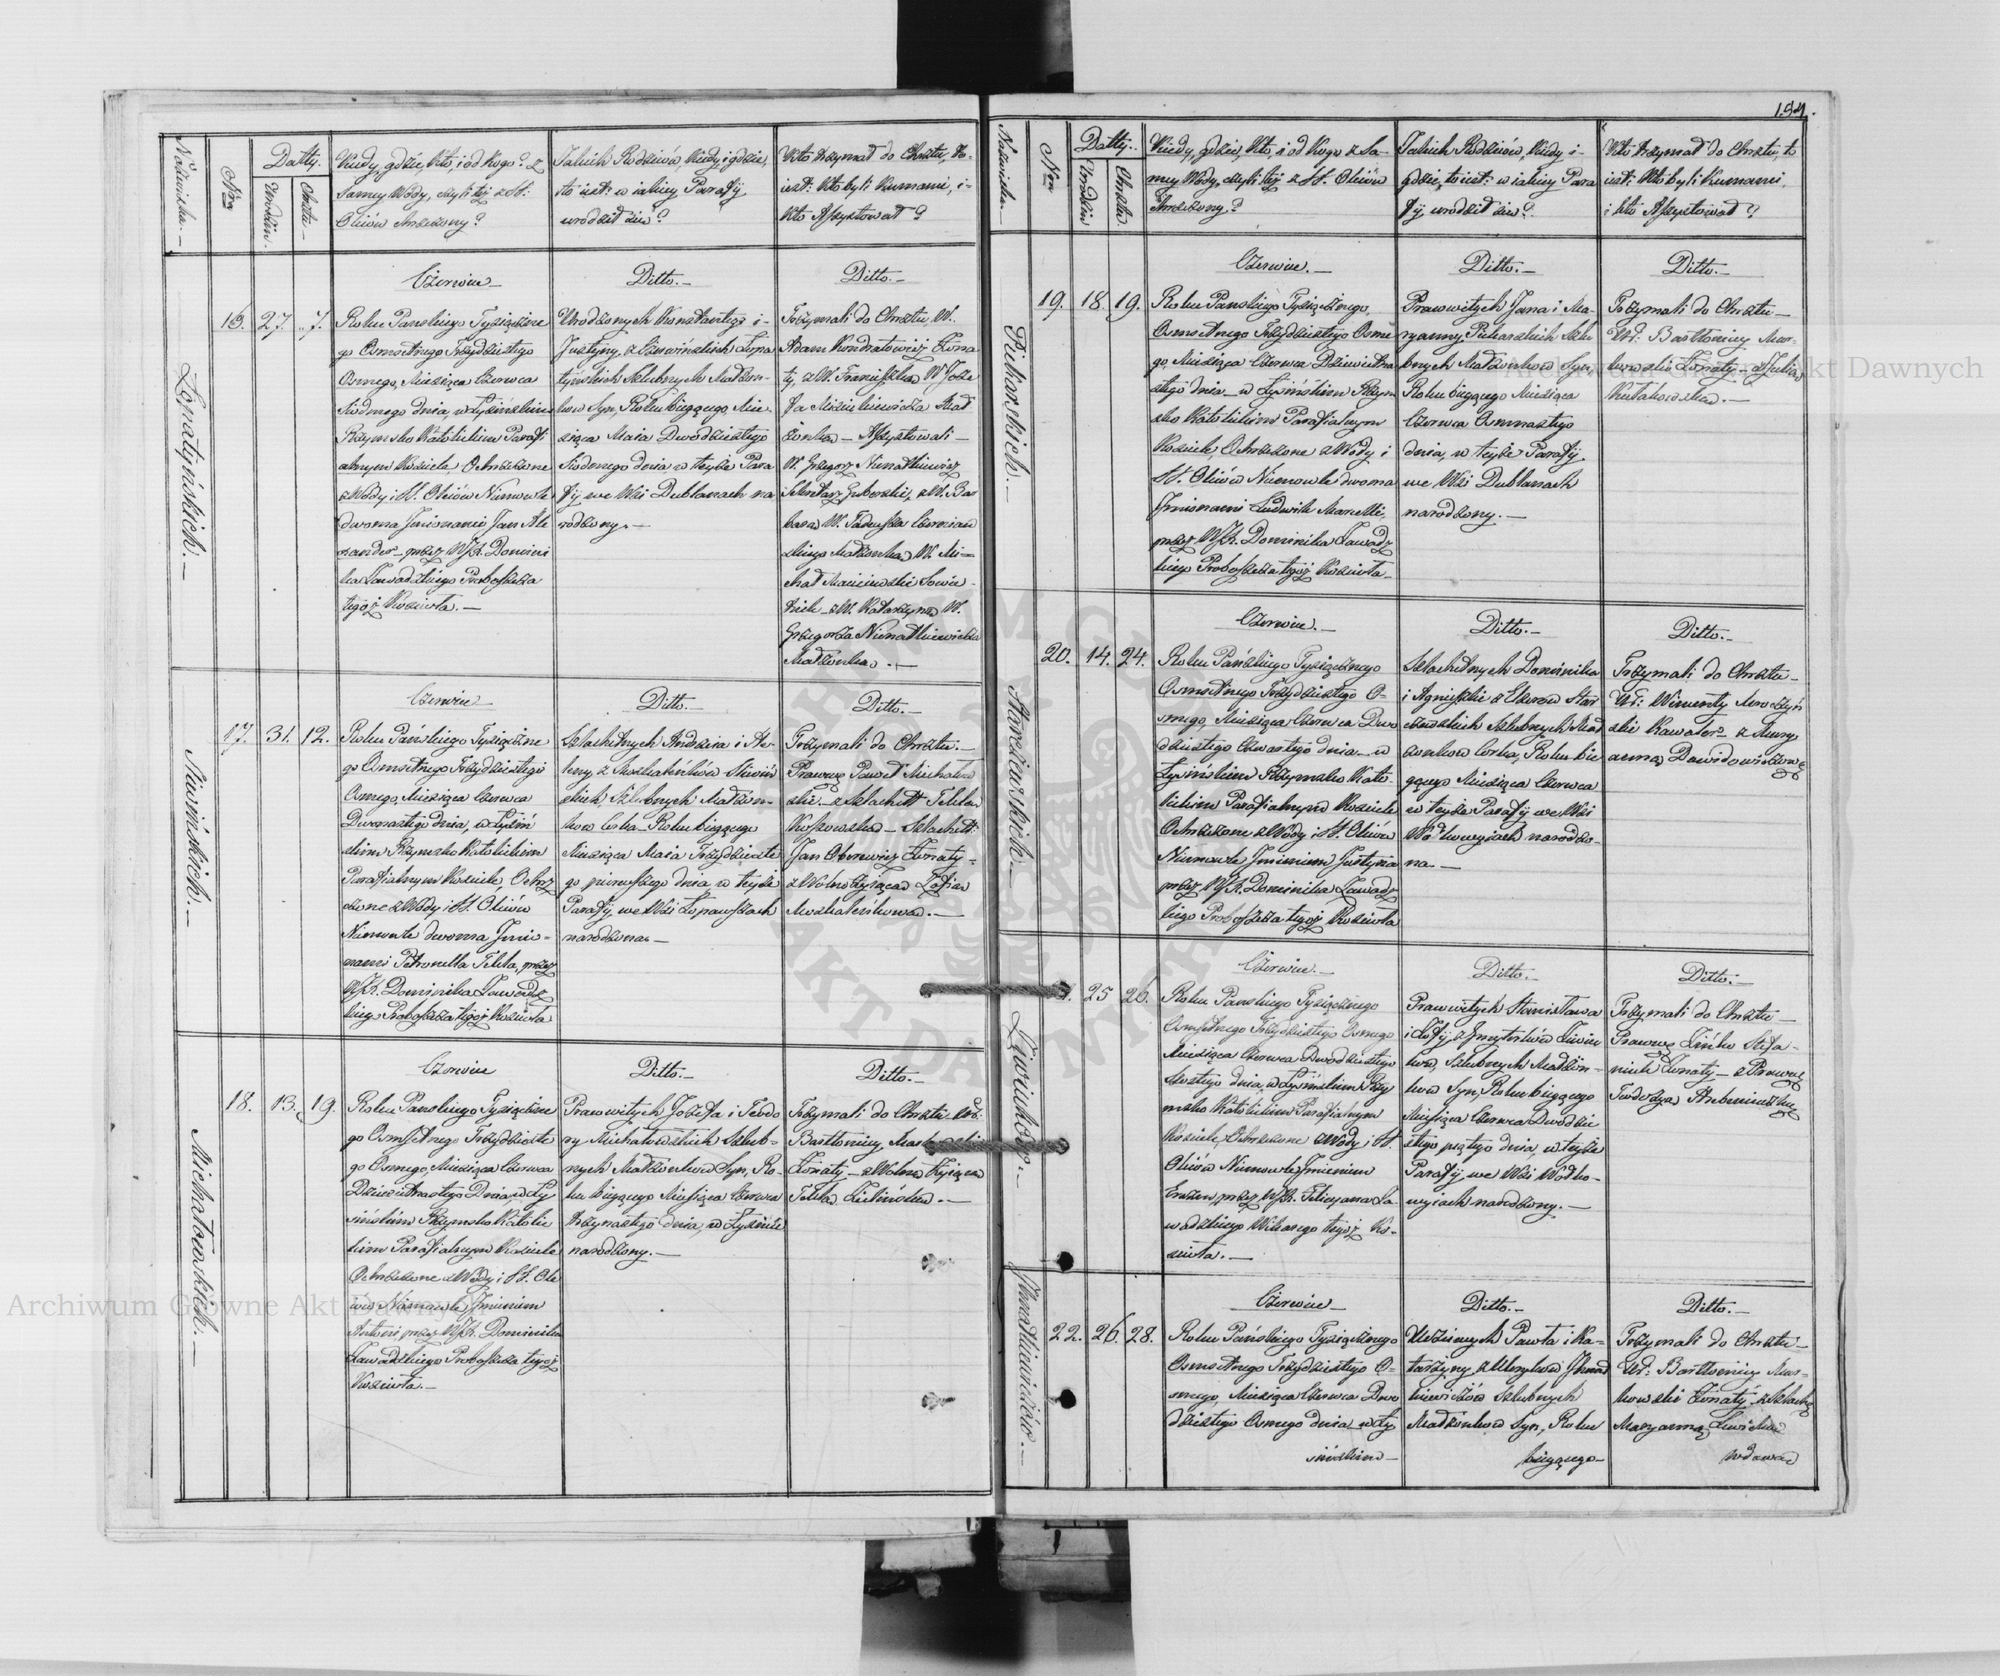 194.
Nazwiska.—
Nro
Datty.
Urodzin.—
Chrztu.—
Kiedy, gdzie, Kto, i od Kogo? z
Samey Wody, czyli też z SS.
Oleiów Chrzczony?
Jakich Rodziców, Kiedy i gdzie,
to iest: w iakiey Parafij
urodził się?
Kto trzymał do Chrztu, to
iest: Kto byli Kumami, i
Kto Assystował?
Łopatyńskich.—
16. 27. 7.
Czerwiec—
Roku Pańskiego Tysiączne
go Osmsetnego Trzydziestego
Osmego, Miesiąca Czerwca
Siodmego dnia, w Łysińskim
Rzymsko Katolickim Parafi
alnym Kościele Ochrzczone
z Wody i SS. Oleiów Niemowle
dwoma Imionami Jan Ale
xander— przez WJX. Domini
ka Zawadzkiego Proboszcza
tegoż Kościoła.—
Ditto.—
Urodzonych Konstantego i
Justyny, z Czerwińskich Łopa
tyńskich Slubnych Małżon-
ków Syn, Roku biegącego Mie
siąca Maia Dwódziestego
Siodmego dnia, w teyże Para
fij we Wsi Dublanach na
rodzony.—
Ditto.—
Trzymali do Chrztu, W.
Adam Kondratowicz Żona
ty, z W. Franciszką W Joze
fa Mickiewicza Mał
żonką— Assystowali—
W. Grzegorz Nienałkiewicz
Sekretarz Guberski, z W. Bar
barą W. Tadeusza Czernian
skiego Małżonką W. Mi-
chał Maciiewski Sowie
tnik— z W. Katarzyną W.
Grzegorza Nienałkiewicza
Małżonką.—
Sliwińskich.—
17. 31. 12.
Czerwiec
Roku Pańskiego Tysiączne
go Osmsetnego Trzydziestego
Osmego, Miesiąca Czerwca
Dwonastego dnia, w Łysiń
skim Rzymsko Katolickim
Parafialnym Kościele, Ochrz
czone z Wody i SS. Oleiów
Niemowle dwoma Imio-
nami Petronella Tekla, przez
WJX. Dominika Zawadz
kiego Proboszcza tegoż Kościoła
Ditto.—
Szlachetnych Andrzeia i He-
leny z Moskaleńków Sliwiń
skich Slubnych Małżon-
ków Córka— Roku biegącego
Miesiąca Maia Trzydzieste
go pierwszego dnia, w teyże
Parafij, we Wsi Łopawszach
narodzona.—
Ditto.—
Trzymali do Chrztu.—
Prawowy Paweł Michałow
ski.— z Szlachett Teklą
Kossowską— Szlachett:
Jan Oborewicz Żonaty—
z Wolną Xsiążącą Zofiią
Moskaleńkową.—
Michałowskich.—
18. 13. 19.
Czerwiec
Roku Pańskiego Tysiączne
go Osmsetnego Trzydzieste
go Osmego, Miesiąca Czerwca
Dziewiętnastego Dnia w Ły
sińskim Rzymsko Katolic
kim Parafialnym Kościele
Ochrzczone z Wody i SS. Ole
iów Niemowle Imieniem
Antoni przez WJX. Dominika
Zawadzkiego Proboszcza tegoż
Kościoła.—
Ditto.—
Prawowitych Jozefa i Teodo
ry Michałowskich Szlub-
nych Małżonków Syn, Ro-
ku biegącego Miesiąca Czerwca
trzynastego dnia, w Łysinie
narodzony.—
Ditto.—
Trzymali do Chrztu Ur:
Bartłomiey Markowski
Żonaty— z Wolną
Teklą Zielińską.—
Nazwiska.—
Nro
Datty.
Urodzin
Chrztu.
Kiedy, gdzie, Kto, i od Kogo z Sa-
mey Wody, czyli też z SS. Oleiów
Chrzczony?
Jakich Rodziców, Kiedy i-
gdzie, to iest: w iakiey Para
fij, urodził się?
Kto trzymał do Chrztu, to
iest: Kto byli Kumami,
i kto Assystował?
Piekarskich.—
19. 18. 19.
Czerwiec.—
Roku Pańskiego Tysiącznego,
Osmsetnego Trzydziestego Osme
go, Miesiąca Czerwca Dziewietna
stego dnia— w Łysińskim Rzym
sko Katolickim Parafialnym
Kościele, Ochrzczone z Wody i
SS. Oleiów Niemowle dwoma
Imionami Ludwik Marcelli,
przez WJX. Dominika Zawadz
kiego Proboszcza tegoż Kościoła.
Ditto.—
Prawowitych Jana i Ma-
ryanny Piekarskich Szlu-
bnych Małżonków Syn,
Roku biegącego Miesiąca
Czerwca Osmnastego
dnia, w teyże Parafij
we Wsi Dublanach
narodzony.—
Ditto.—
Trzymali do Chrztu—
Ur: Bartłomiey Mar-
kowski Żonaty— z Julią
Kułakowską.—
Starczewskich.—
20. 14. 24.
Czerwiec.—
Roku Pańskiego Tysiącznego
Osmsetnego Trzydziestego O-
smego, Miesiąca Czerwca Dwo
dziestego Czwartego dnia— w
Łysińskim Rzymsko Kato
lickim Parafialnym Kosciele
Ochrzczone z Wody i SS. Oleiów
Niemowle Imieniem Justyna
przez WJX. Dominika Zawadz
kiego Proboszcza tegoż Kościoła
Ditto.—
Szlachetnych Dominika
i Agnieszki z Star
czewskich Szlubnych Mał
żonków Córka, Roku bie
gącego Miesiąca Czerwca
w teyże Parafij we Wsi
Wołkowyiach narodzo-
na.—
Ditto.—
Trzymali do Chrztu—
Ur: Wincenty Mroczyń
ski Kawaler— z Mary
anną Dawidowiczową
Liwickow.—
25 26.
Czerwiec.—
Roku Pańskiego Tysiącznego
Osmsetnego Trzydziestego Osmego
Miesiąca Czerwca Dwodziestego
Szostego dnia, w Łysińskim Rzy
msko Katolickim Parafialnym
Kościele, Ochrzczone z Wody i SS.
Oleiów Niemowle Imieniem
Erazm, przez WJX. Felicyana Za
wadzkiego Wikarego tegoż Ko-
ścioła.—
Ditto.—
Prawowitych Stanisława
i Zofij, z Liwic
ków, Szlubnych Małżon-
ków Syn, Roku biegącego
Miesiąca Czerwca Dwódzie
stego piątego dnia, w teyże
Parafij, we Wsi Wołko-
wyiach narodzony.—
Ditto.—
Trzymali do Chrztu—
Prawowy Łuńko Stefa-
niuk Żonaty— z Prawną
Teodozyą Antoniuczką
Ihnatkiewiczów.—
22. 26. 28.
Czerwiec—
Roku Pańskiego Tysiącznego
Osmsetnego Trzydziestego O-
smego, Miesiąca Czerwca Dwo
dziestego Osmego dnia w Ły
sińskim—
Ditto.—
Uczciwych Pawła i Ka-
tarzyny z Ihnat
kiewiczów Szlubnych
Małżonków Syn, Roku
biegącego—
Ditto.—
Trzymali do Chrztu—
Ur: Bartłomiey Mar-
kowski Żonaty z Szlach
Maryanną Liwicką
wdową
Archiwum Główne Akt Dawnych
Archiwum Główne Akt Dawnych
ARCHIWUM GŁÓWNE AKT DAWNYCH